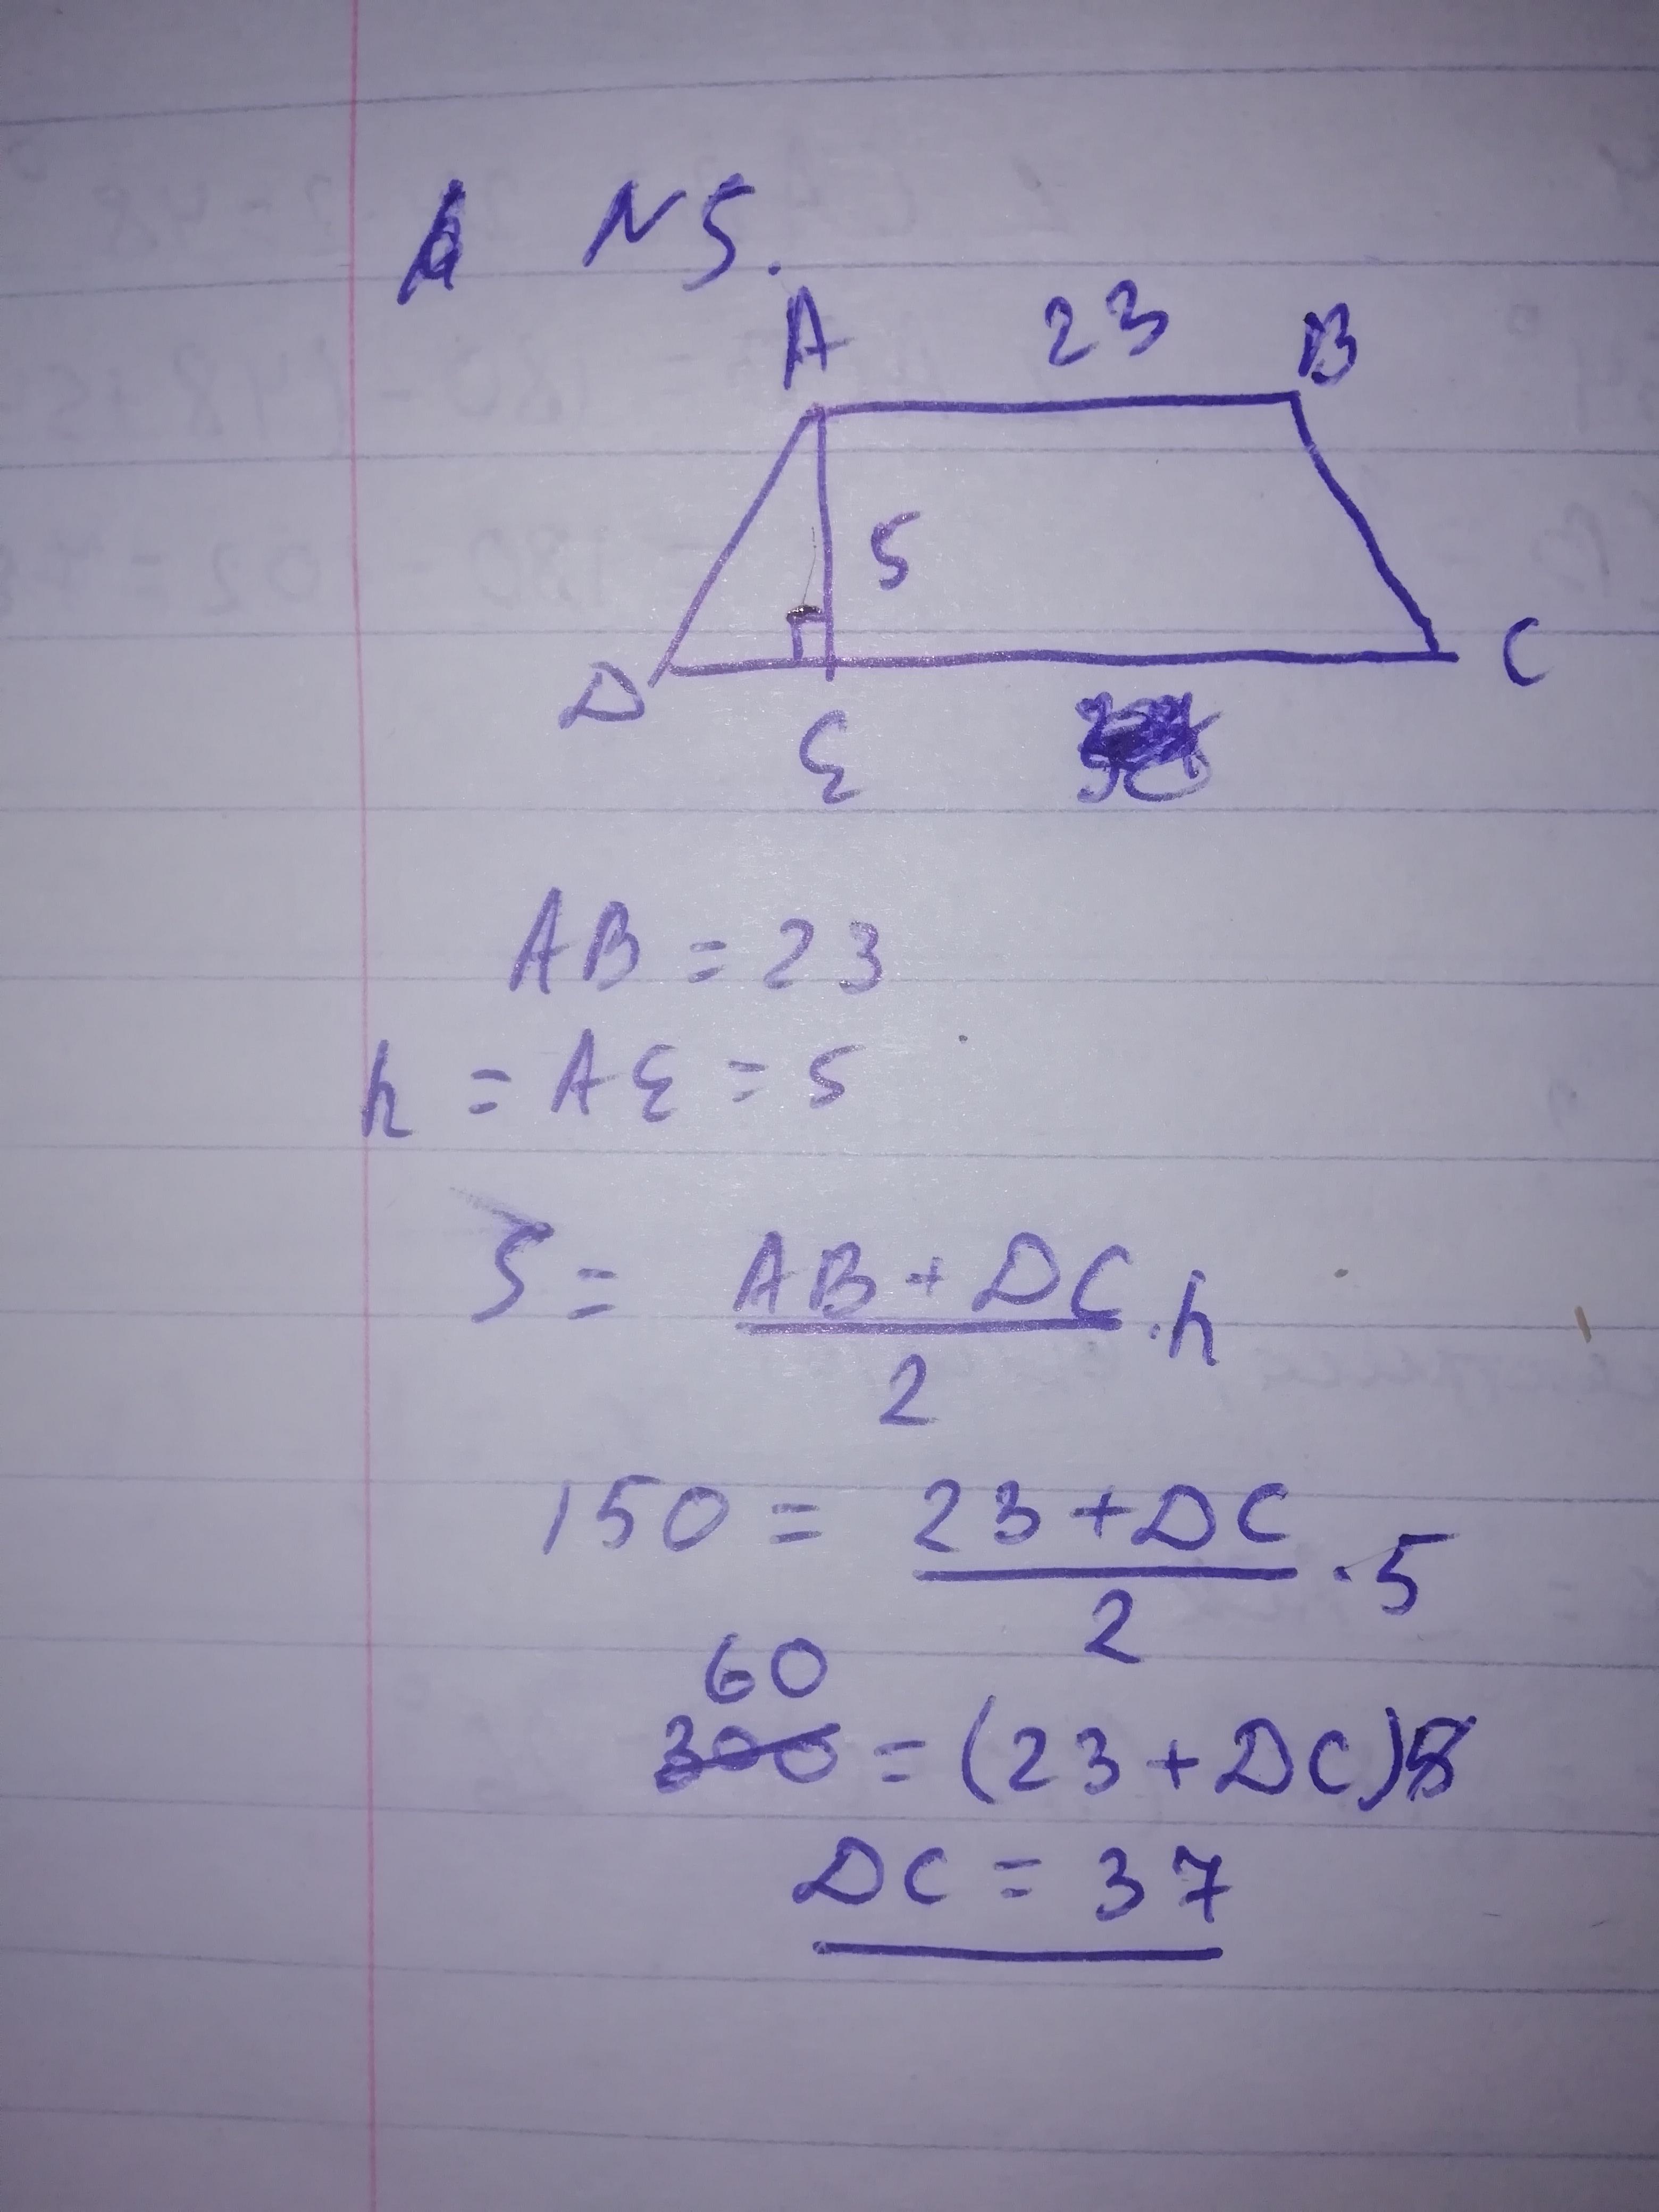 N 5.
A 23 B
5
D C
E
AB = 23
h = AE = 5
S = (AB + DC)/2 · h
150 = (23 + DC)/2 · 5
60
300 = (23 + DC)5
DC = 37